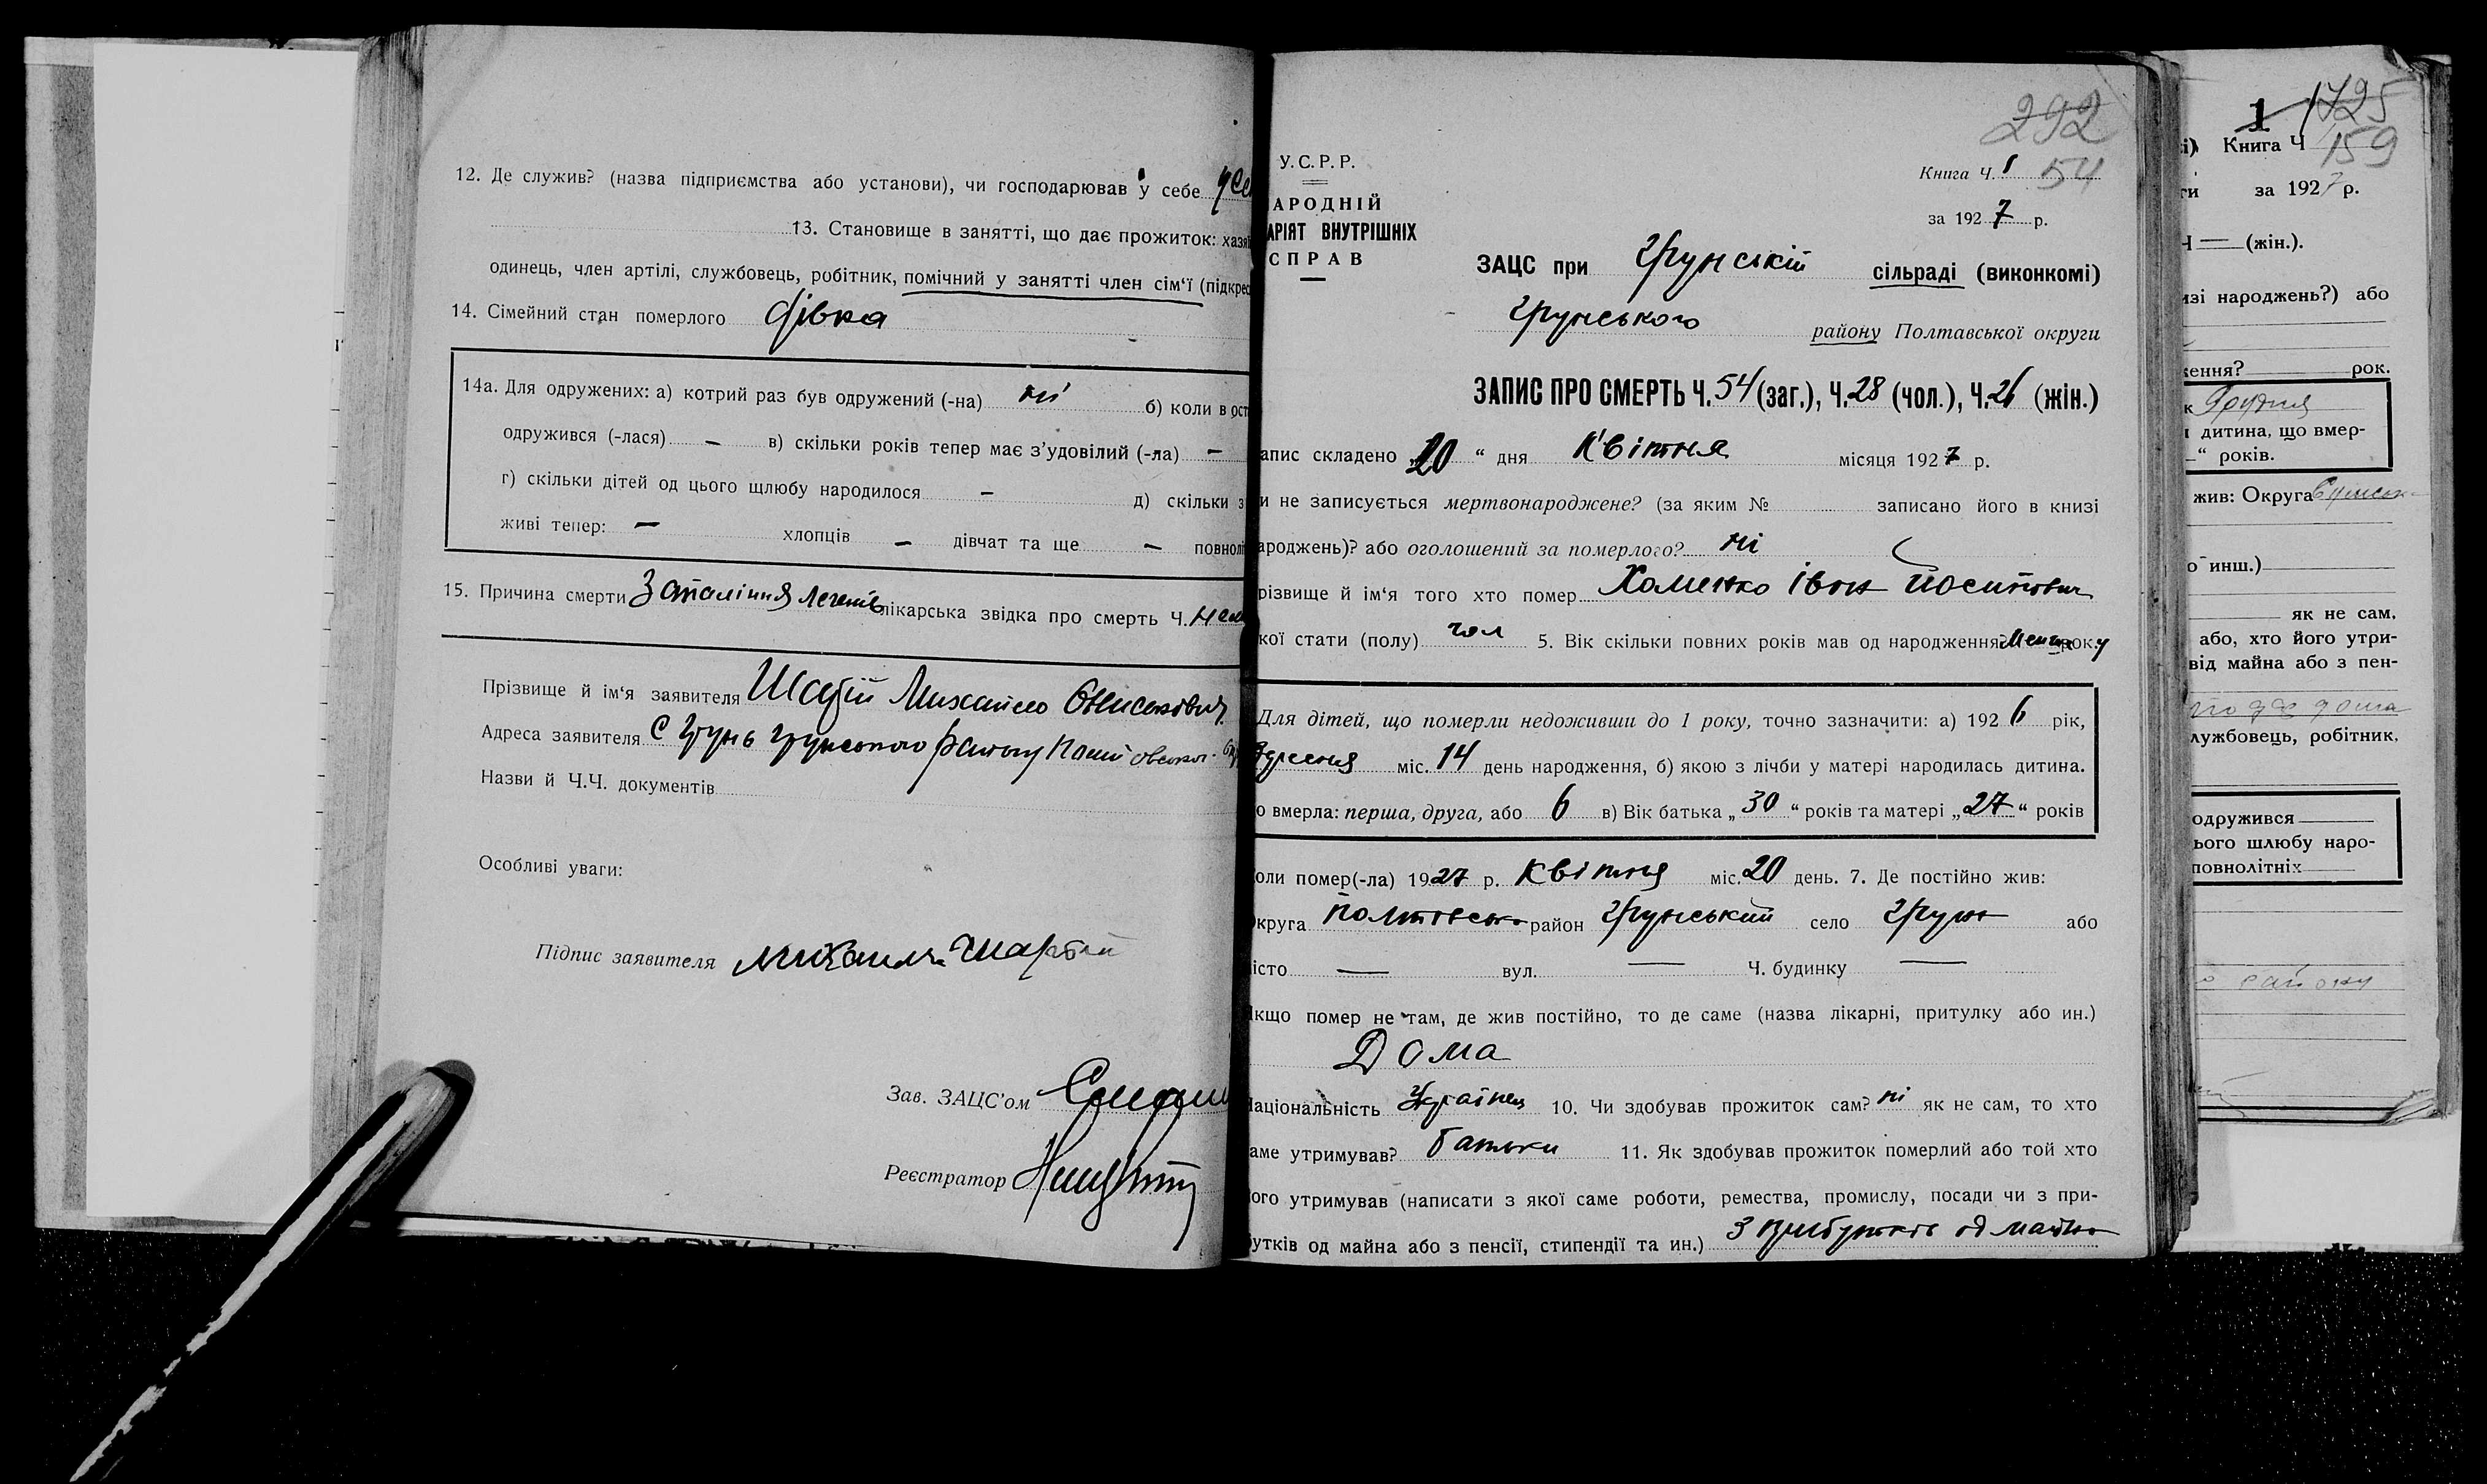 12. Де служив? (назва підприємства або установи), чи господарював у себе
13. Становище в занятті, що дає прожиток: хазяї
одинець, член артілі, службовець, робітник, помічний у занятті член сім‘ї (підкрес
14. Сімейний стан померлого дівка
14а. Для одружених: а) котрий раз був одружений (-на) ні б) коли в ост
одружився (-лася) — в) скільки років тепер має з’удовілий (-ла) —
г) скільки дітей од цього щлюбу народилося — д) скільки з
живі тепер: — хлопців — дівчат та ще — повноліт
15. Причина смерти Запаління легенів лікарська звідка про смерть Ч. нема
Прізвище й ім‘я заявителя Михайло
Адреса заявителя с Грунь Грунського району
Назви й Ч.Ч. документів
Особливі уваги:
Підпис заявителя
Зав. ЗАЦС’ом
Реєстратор
292
У.С.Р.Р.
АРОДНІЙ
АРІЯТ ВНУТРІШНІХ
СПРАВ
Книга Ч. 1 54
за 1927 р.
ЗАЦС при Грунській сільраді (виконкомі)
Грунського району Полтавської округи
ЗАПИС ПРО СМЕРТЬ Ч. 54 (заг.), Ч. 28 (чол.), Ч. 26 (жін.)
апис складено „20“ дня Квітня місяця 1927 р.
и не записується мертвонароджене? (за яким № записано його в книзі
ароджень)? або оголошений за померлого? ні
різвище й ім‘я того хто помер Хоменко Іван Йосипович
кої стати (полу) чол 5. Вік скільки повних років мав од народження? Менше року
Для дітей, що померли недоживши до 1 року, точно зазначити: а) 1926 рік,
Вересня міс. 14 день народження, б) якою з лічби у матері народилась дитина.
о вмерла: перша, друга, або 6 в) Вік батька „30“ років та матері „27“ років
оли помер(-ла) 1927 р. Квітня міс. 20 день. 7. Де постійно жив:
круга Полтавська район Грунський село Грунь або
істо — вул. — Ч. будинку —
кщо помер не там, де жив постійно, то де саме (назва лікарні, притулку або ин.)
Дома
аціональність Українец 10. Чи здобував прожиток сам? ні як не сам, то хто
аме утримував? батьки 11. Як здобував прожиток померлий або той хто
ого утримував (написати з якої саме роботи, ремества, промислу, посади чи з при-
утків од майна або з пенсії, стипендії та ин.) З прибутків од майна
1 1725
і) Книга Ч 159
ти за 1927 р.
Ч — (жін.).
изі народжень?) або
ження? рок.
к Грудня
и дитина, що вмер-
— “ років.
жив: Округа
о инш.)
як не сам,
або, хто його утри-
від майна або з пен-
лужбовець, робітник,
одружився
ього шлюбу наро-
повнолітніх
району